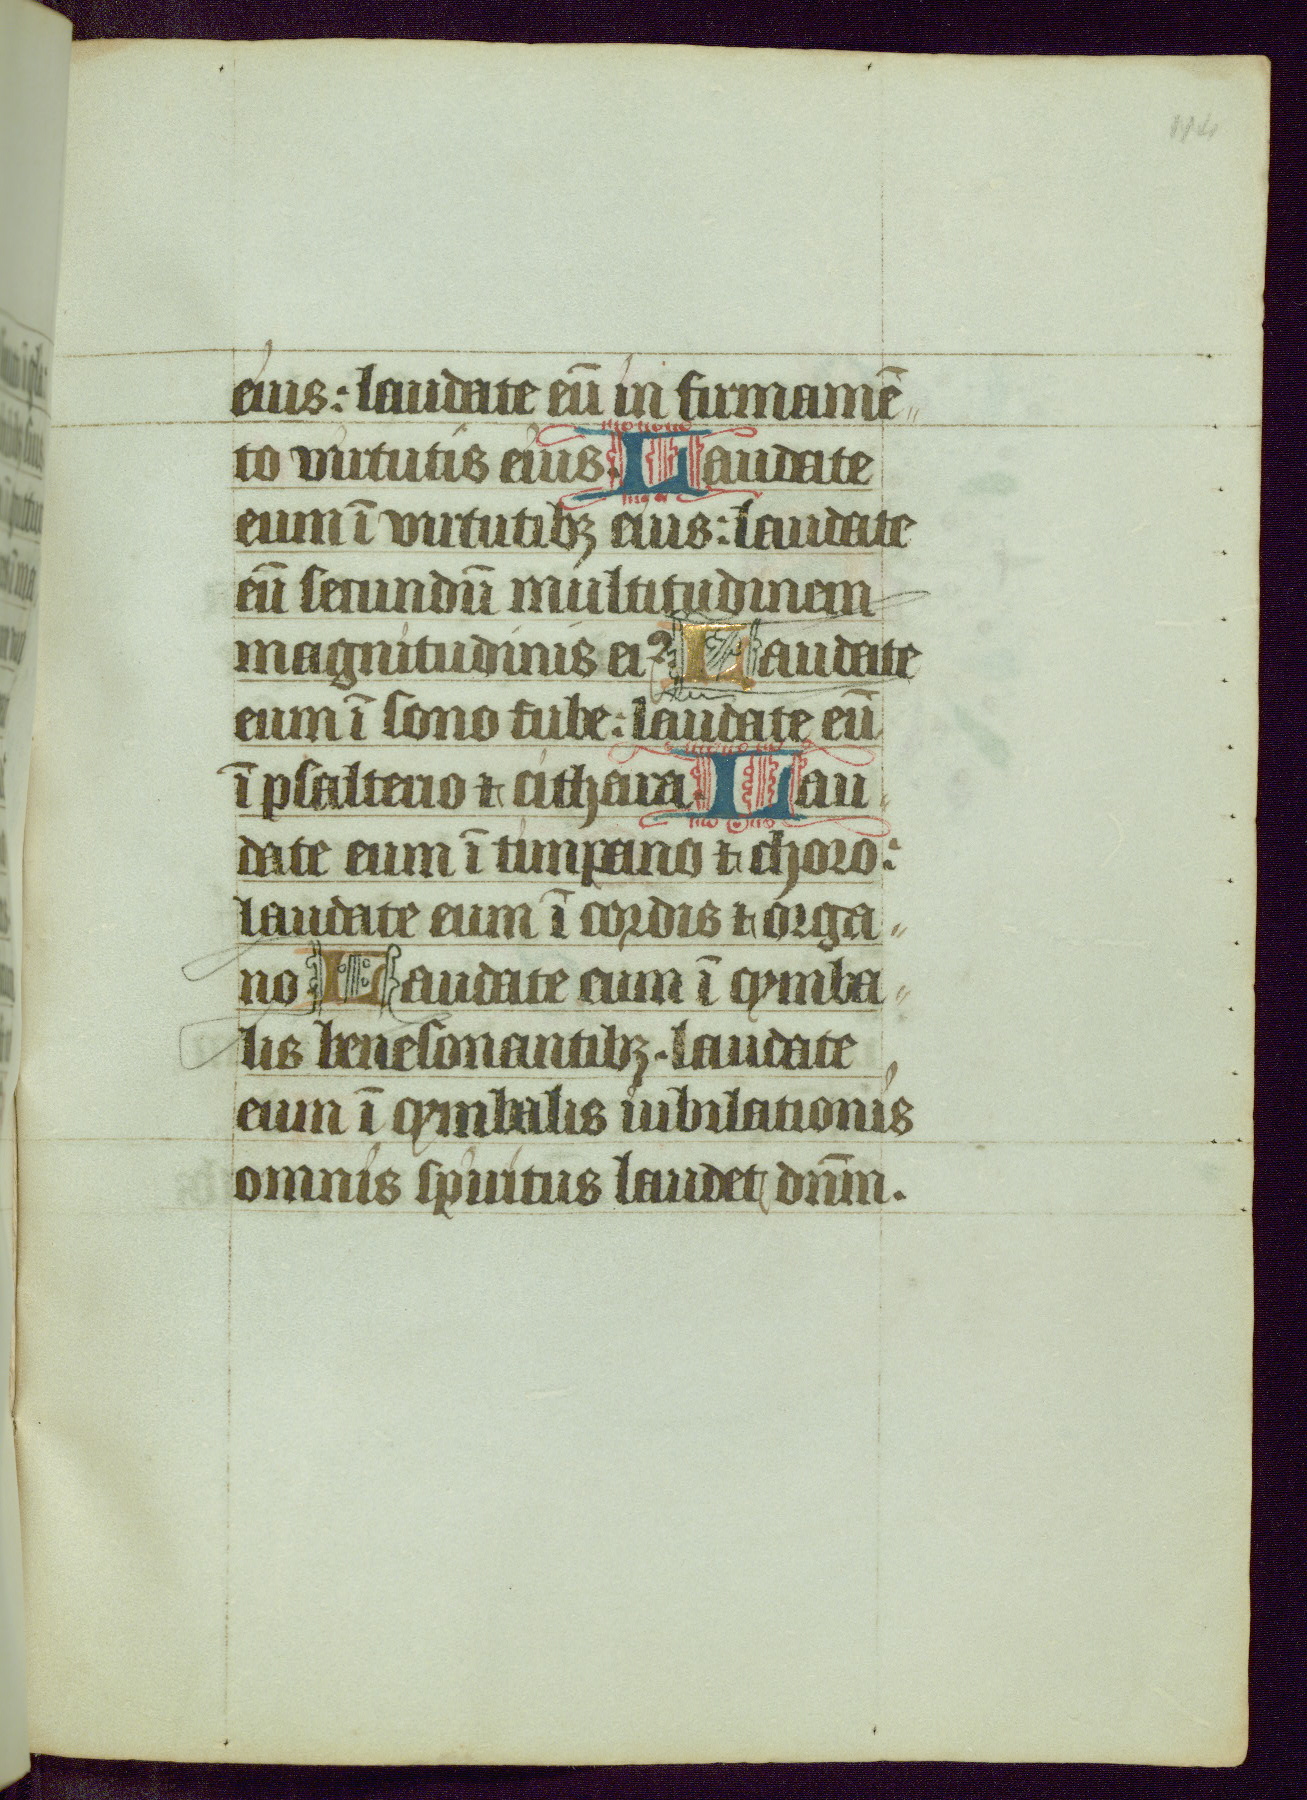 eius: laudate eū in firmamē„
to virtutis eius. Laudate
eum ī virtutibꝫ eius: laudate
eū secundū multitudinem
magnitudinis eiꝰ Laudate
eum ī sono tube: laudate eū
ī psalterio ⁊ cithara. Lau„
date eum ī timpano ⁊ choro:
laudate eum ī cordis ⁊ orga„
no Laudate eum ī cymba„
lis benesonantibꝫ. laudate
eum ī cymbalis iubilationis
omnis spiritus laudet dn̄m.